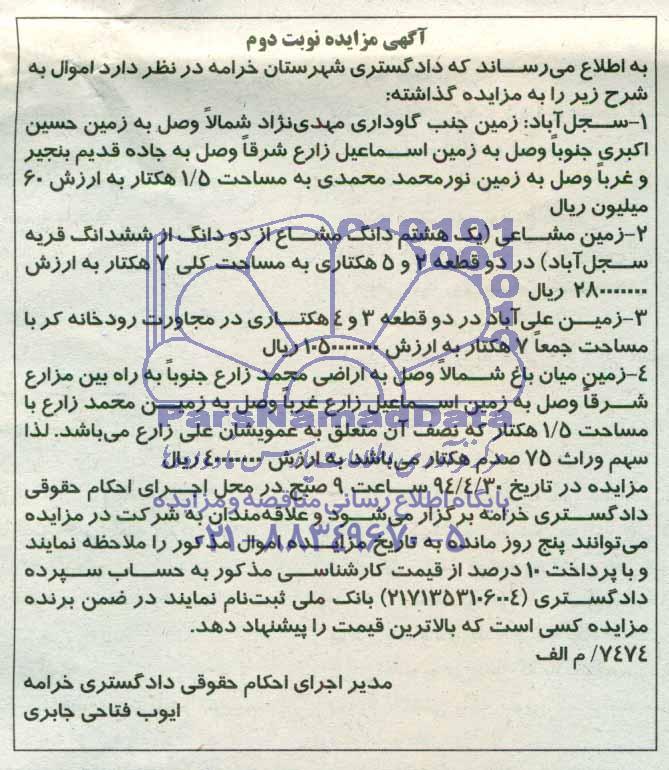 آگهی مزایده نوبت دوم
به اطلاع می‌رساند که دادگستری شهرستان خرامه در نظر دارد اموال به
شرح زیر را به مزایده گذاشته:
۱-سجل‌آباد: زمین جنب گاوداری مهدی‌نژاد شمالاً وصل به زمین حسین
اکبری جنوباً وصل به زمین اسماعیل زارع شرقاً وصل به جاده قدیم بنجیر
و غرباً وصل به زمین نورمحمد محمدی به مساحت ۱/۵ هکتار به ارزش ۶۰
میلیون ریال
۲-زمین مشاعی (یک هشتم دانگ مشاع از دو دانگ از ششدانگ قریه
سجل‌آباد) در دو قطعه ۲ و ۵ هکتاری به مساحت کلی ۷ هکتار به ارزش
۲۸۰۰۰۰۰۰۰ ریال
۳-زمین علی‌آباد در دو قطعه ۳ و ۴ هکتاری در مجاورت رودخانه کر با
مساحت جمعاً ۷ هکتار به ارزش ریال
۴-زمین میان باغ شمالاً وصل به اراضی محمد زارع جنوباً به راه بین مزارع
شرقاً وصل به زمین اسماعیل زارع غرباً وصل به زمین محمد زارع با
مساحت ۱/۵ هکتار که نصف آن متعلق به عمویشان علی زارع می‌باشد. لذا
سهم وراث ۷۵ صدم هکتار می‌باشد به ارزش ریال
مزایده در تاریخ ۹۴/۴/۳۰ ساعت ۹ صبح در محل اجرای احکام حقوقی
دادگستری خرامه برگزار می‌شود و علاقه‌مندان به شرکت در مزایده
می‌توانند پنج روز مانده به تاریخ مزایده اموال مذکور را ملاحظه نمایند
و با پرداخت ۱۰ درصد از قیمت کارشناسی مذکور به حساب سپرده
دادگستری (۲۱۷۱۳۵۳۱۰۶۰۰۴) بانک ملی ثبت‌نام نمایند در ضمن برنده
مزایده کسی است که بالاترین قیمت را پیشنهاد دهد.
۷۴۷۴/ م الف
مدیر اجرای احکام حقوقی دادگستری خرامه
ایوب فتاحی جابری
ParsNamadData
پایگاه اطلاع رسانی مناقصه و مزایده
۰۲۱-۸۸۳۴۹۶۷۰-۵